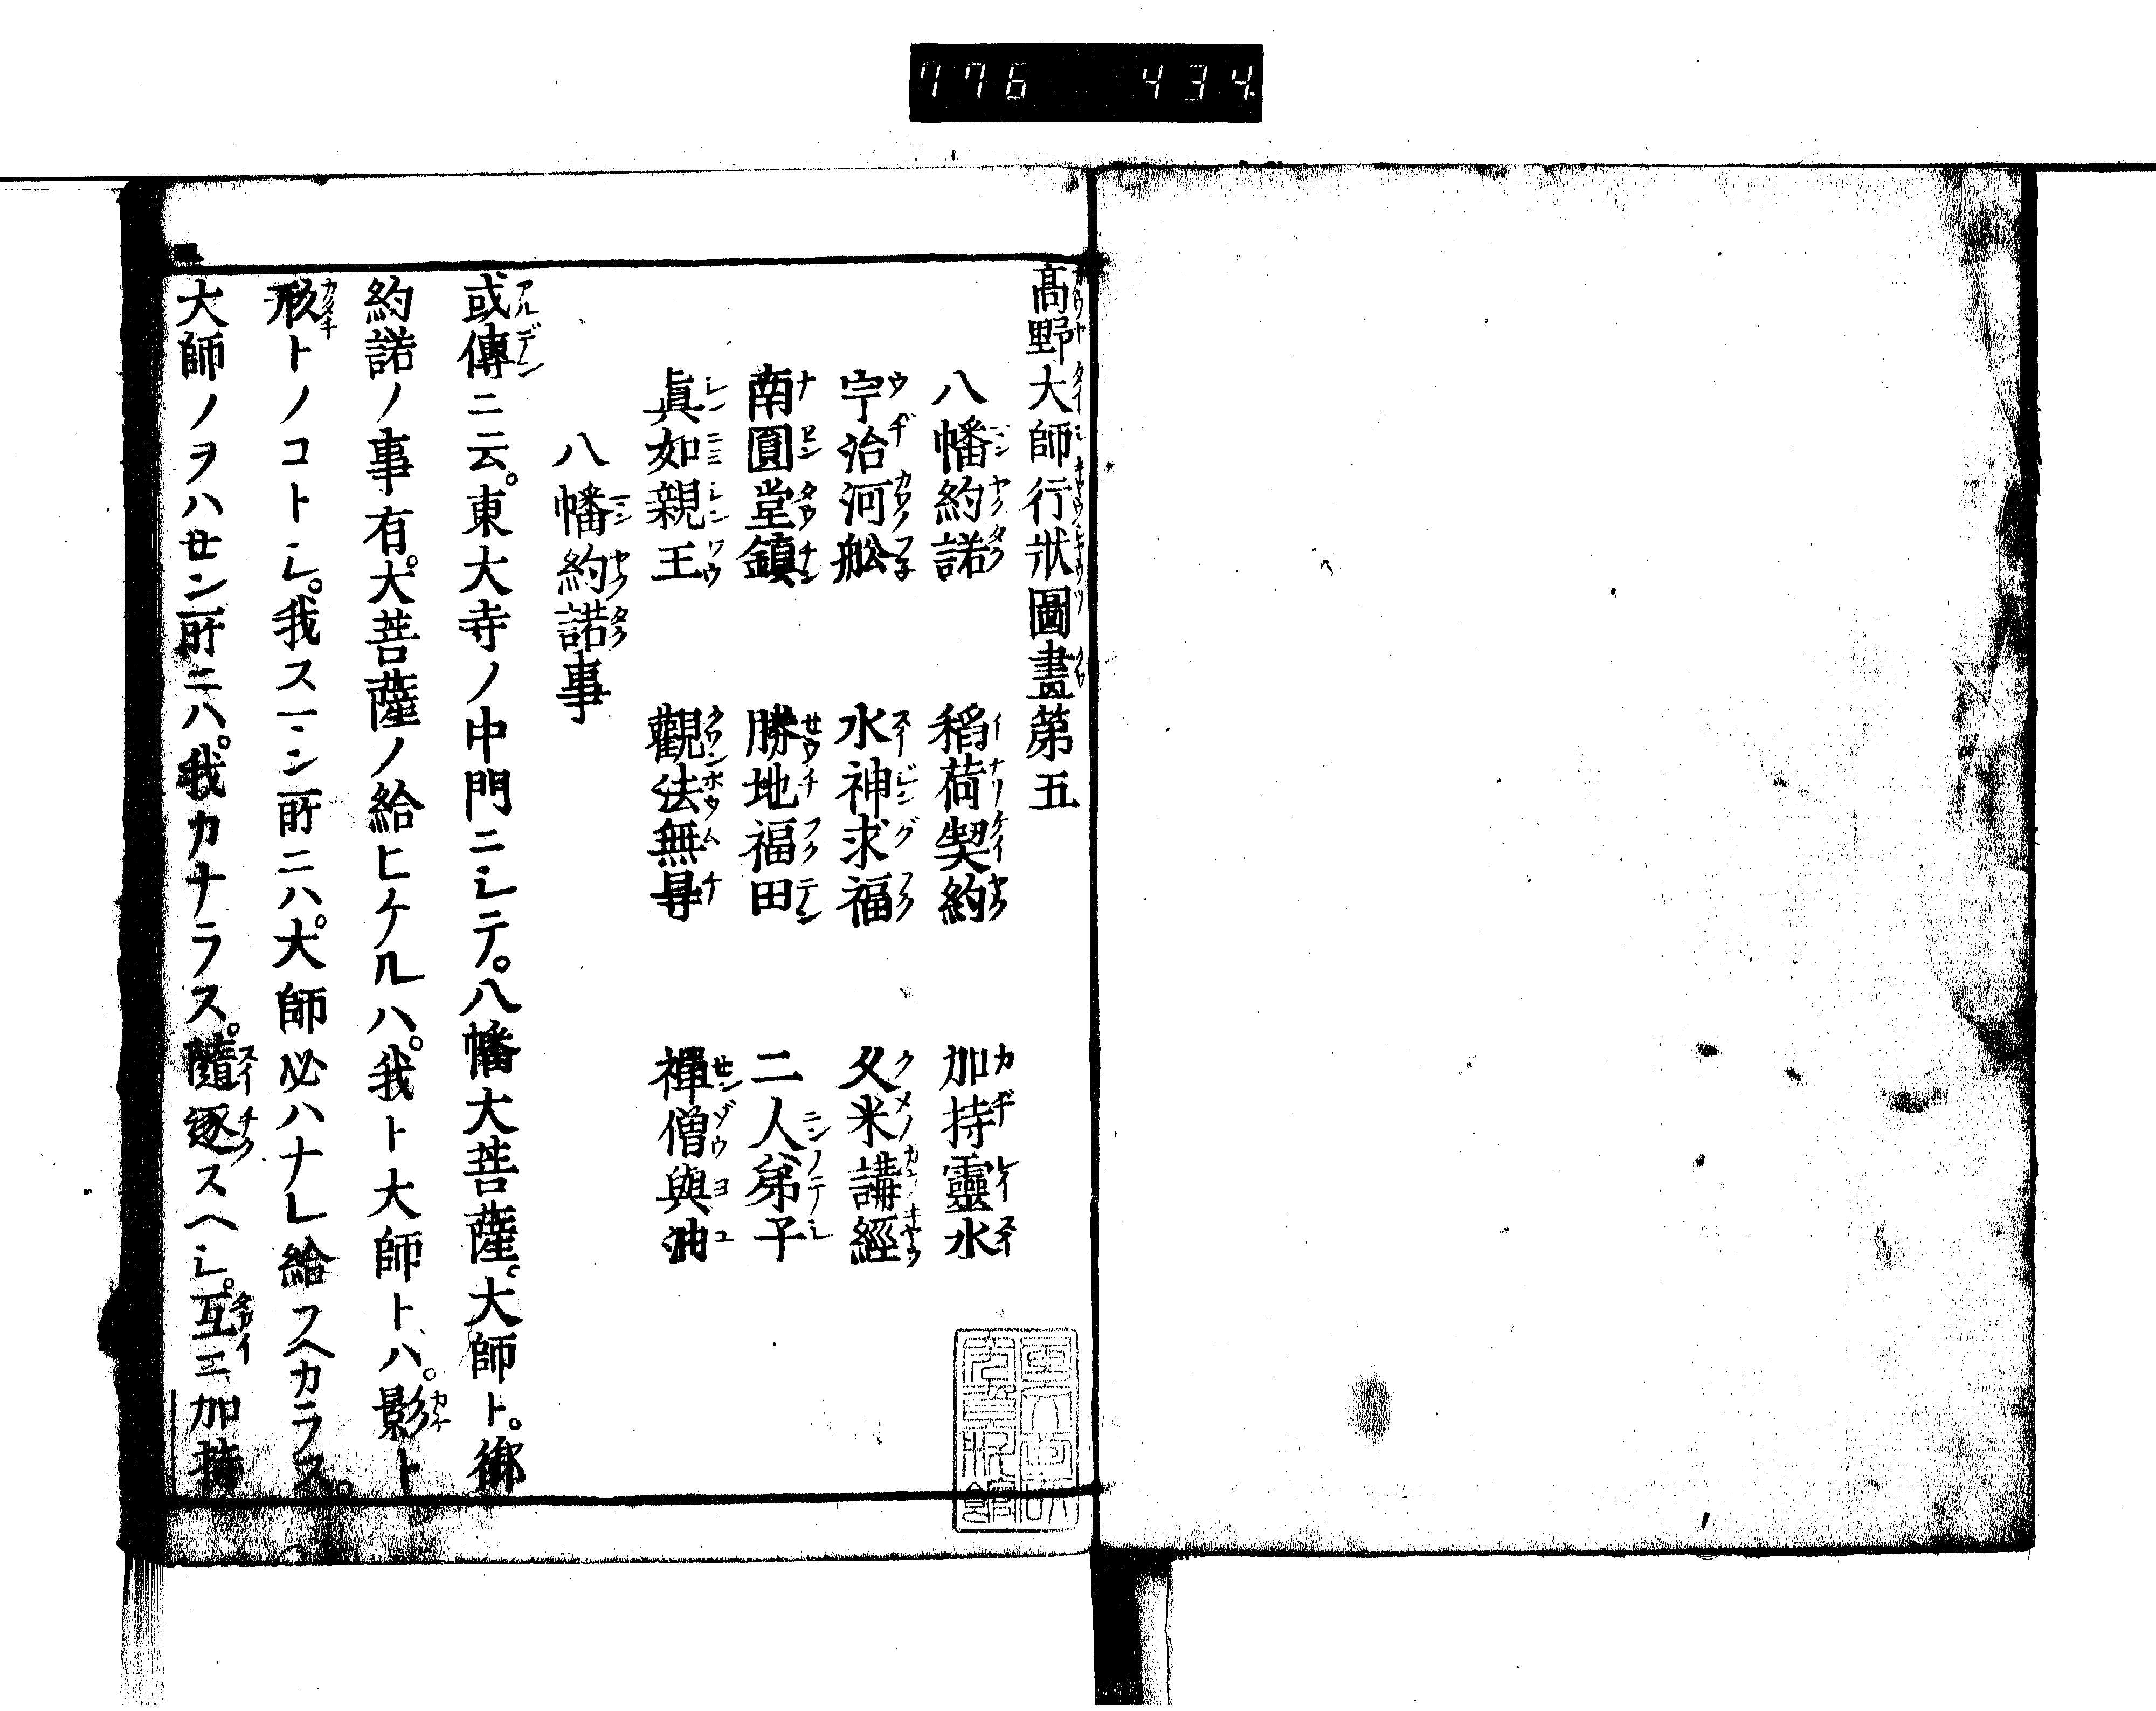 776 434
高野大師行狀圖畫第五
八幡約諾 稻荷契約 加持靈水
宇治河舩 水神求福 久米講經
南圓堂鎮 勝地福田 二人弟子
眞如親王 觀法無㝵 禪僧與油
八幡約諾事
或傳ニ云。東大寺ノ中門ニシテ。八幡大菩薩。大師ト。御
約諾ノ事有。大菩薩ノ給ヒケルハ。我ト大師トハ。影ト
形トノコトシ。我スマン所ニハ。大師必ハナレ給フヘカラス。
大師ノヲハセン所ニハ。我カナラス。隨逐スヘシ。互ニ加持